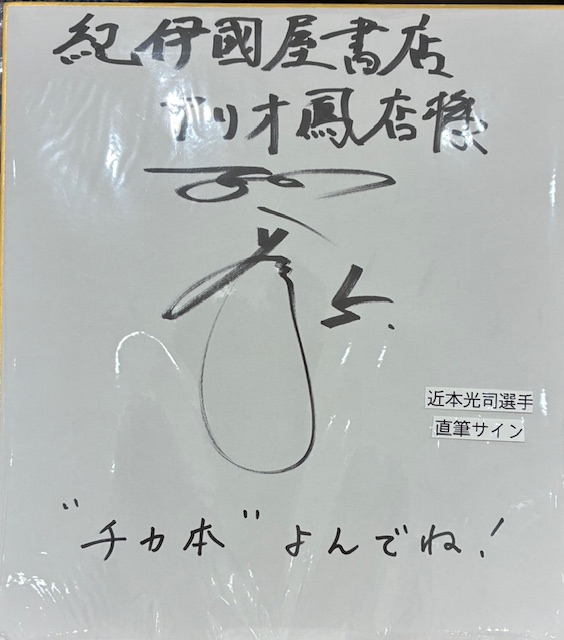 紀伊國屋書店
アリオ鳳店様
5.
近本光司選手
直筆サイン
"チカ本"よんでね!